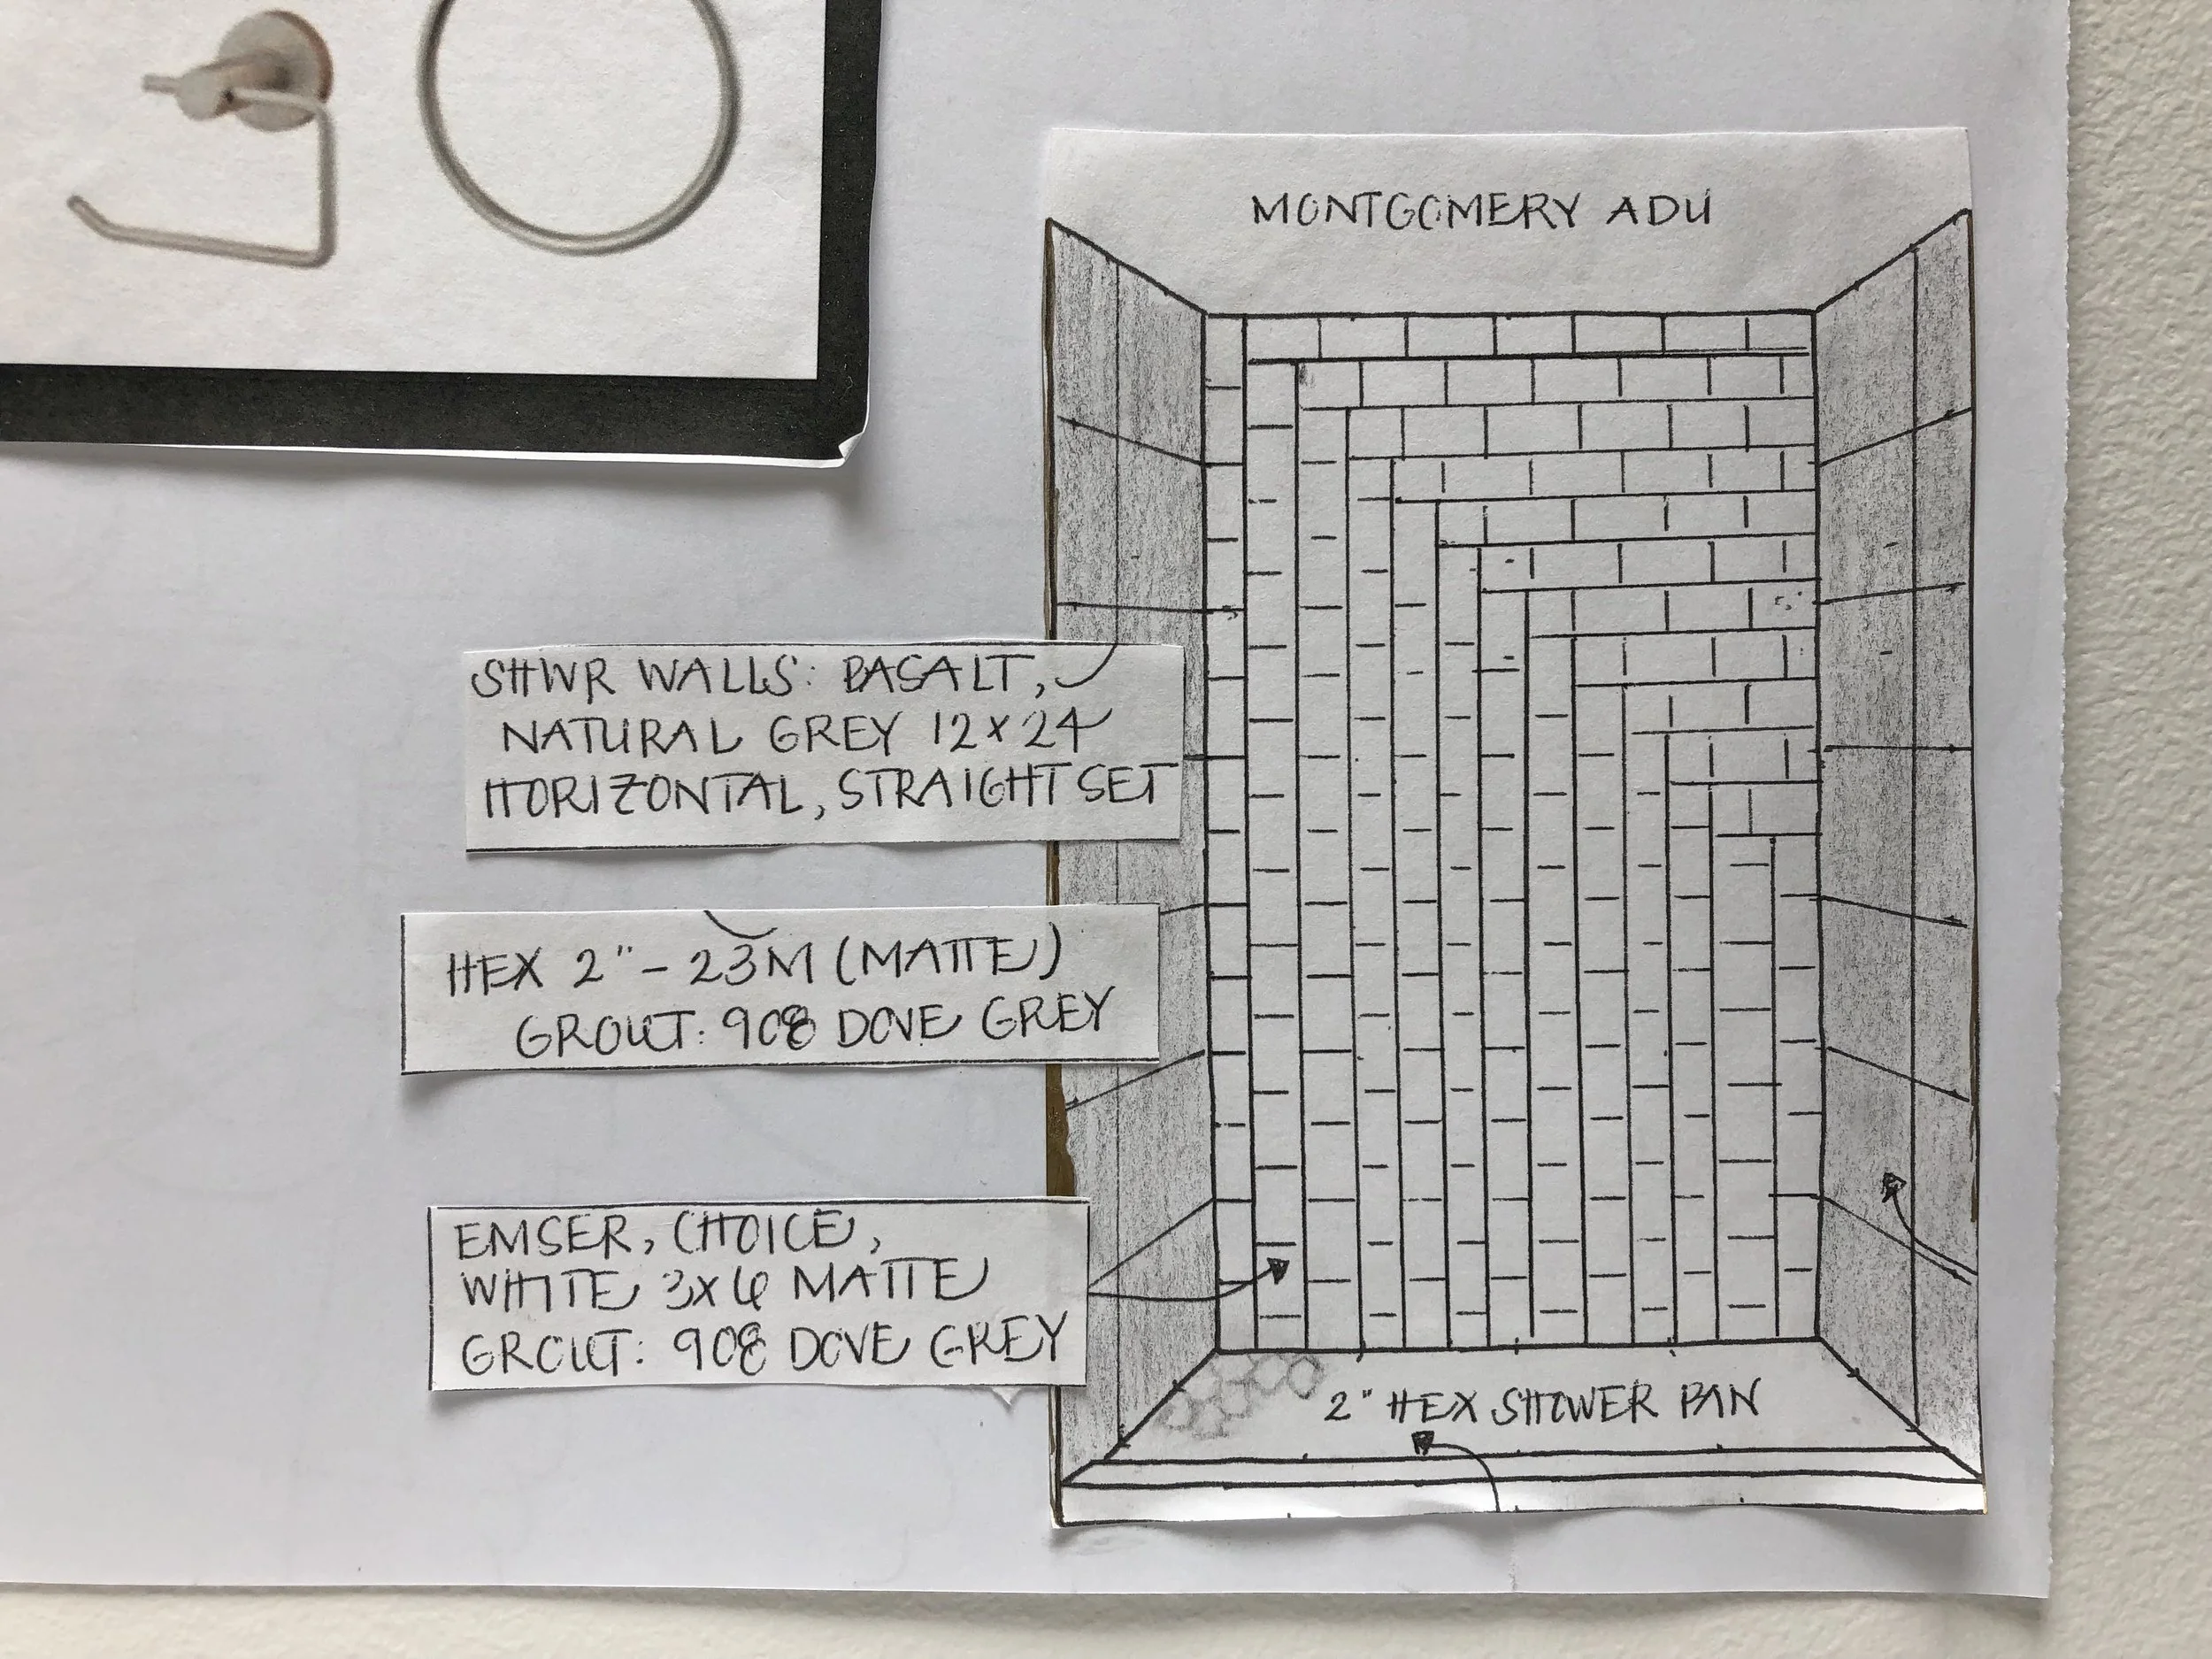 MONTGOMERY ADU
SHWR WALLS: BASALT,
NATURAL GREY 12 x 24
HORIZONTAL, STRAIGHT SET
HEX 2" - 23M (MATTE)
GROUT: 908 DOVE GREY
EMSER, CHOICE,
WHITE 3x6 MATTE
GROUT: 908 DOVE GREY
2" HEX SHOWER PAN